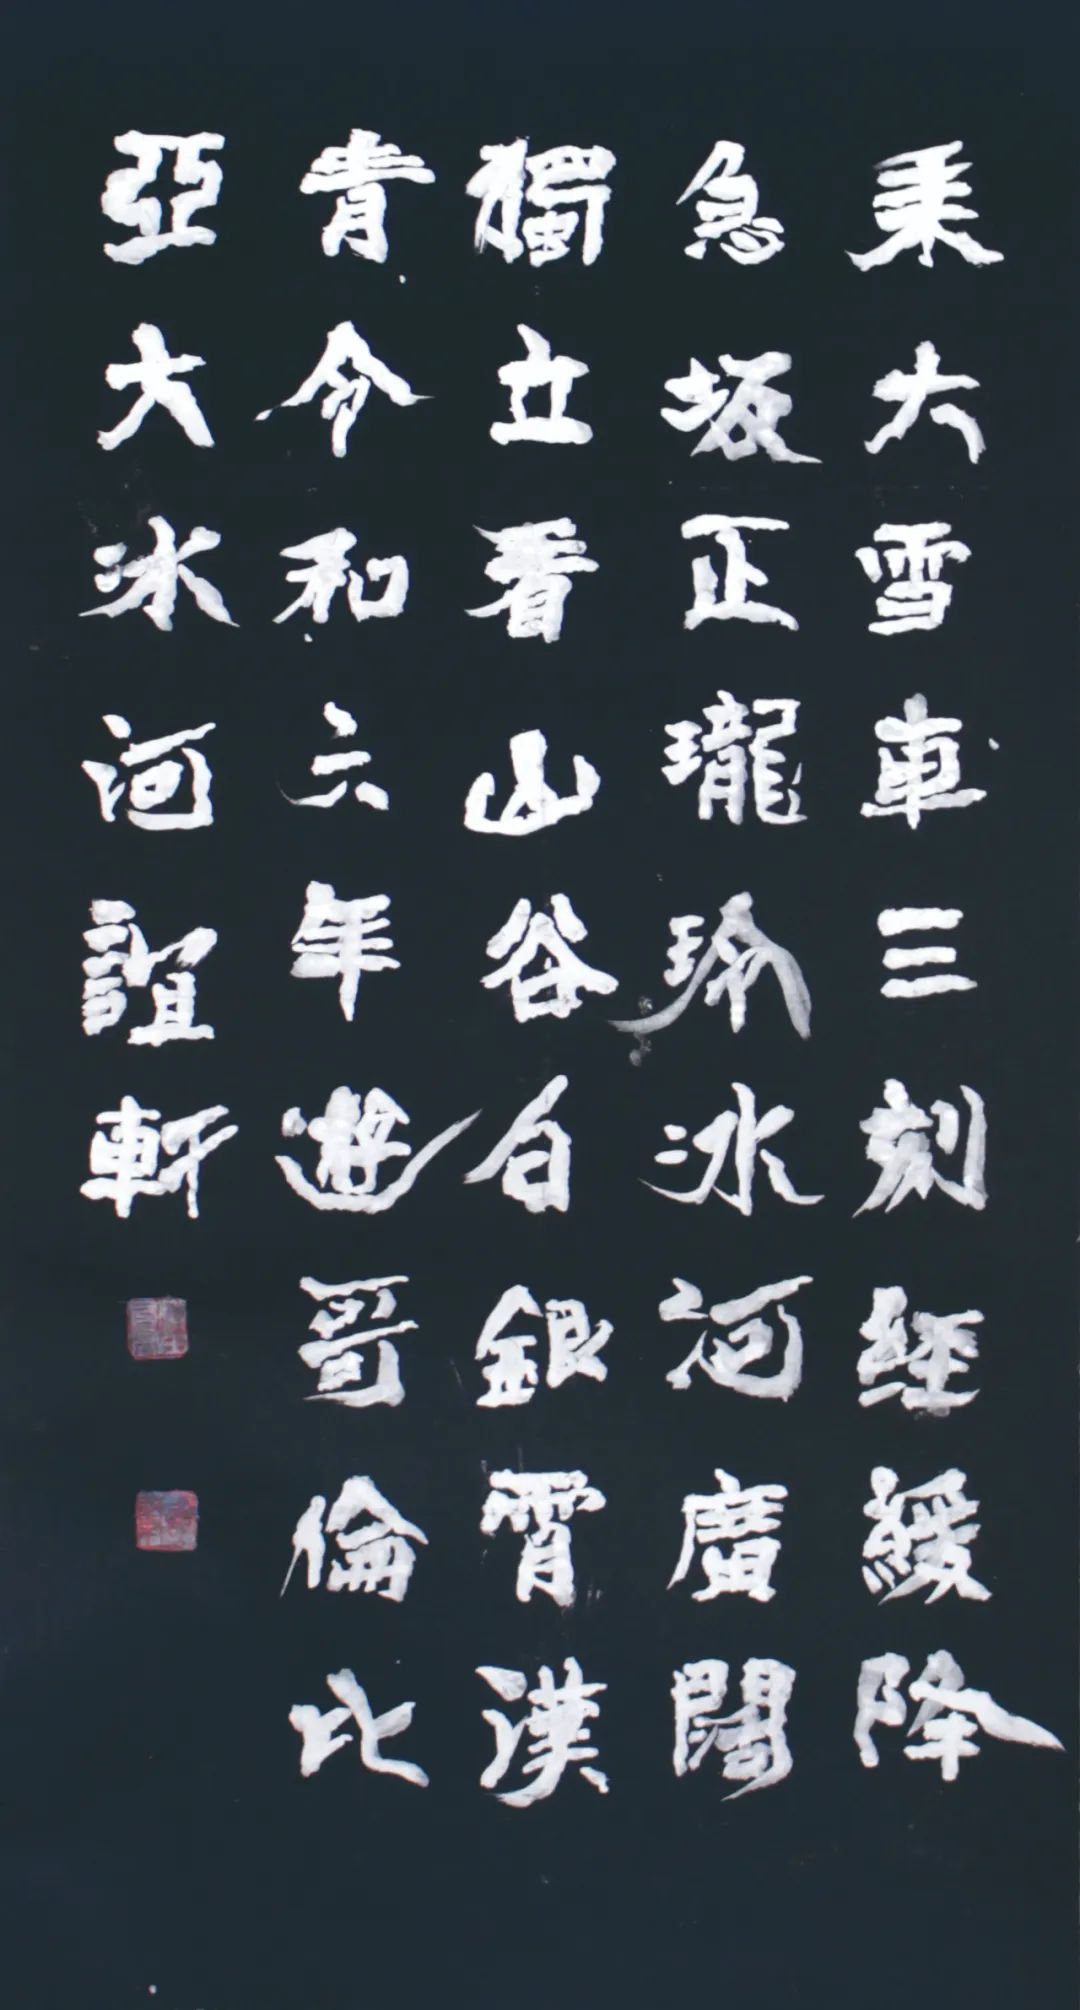 乘大雪車三刻經緩降
急坂正瓏玲冰河廣闊
獨立看山谷白銀霄漢
青令和六年遊哥倫比
亞大冰河誼軒